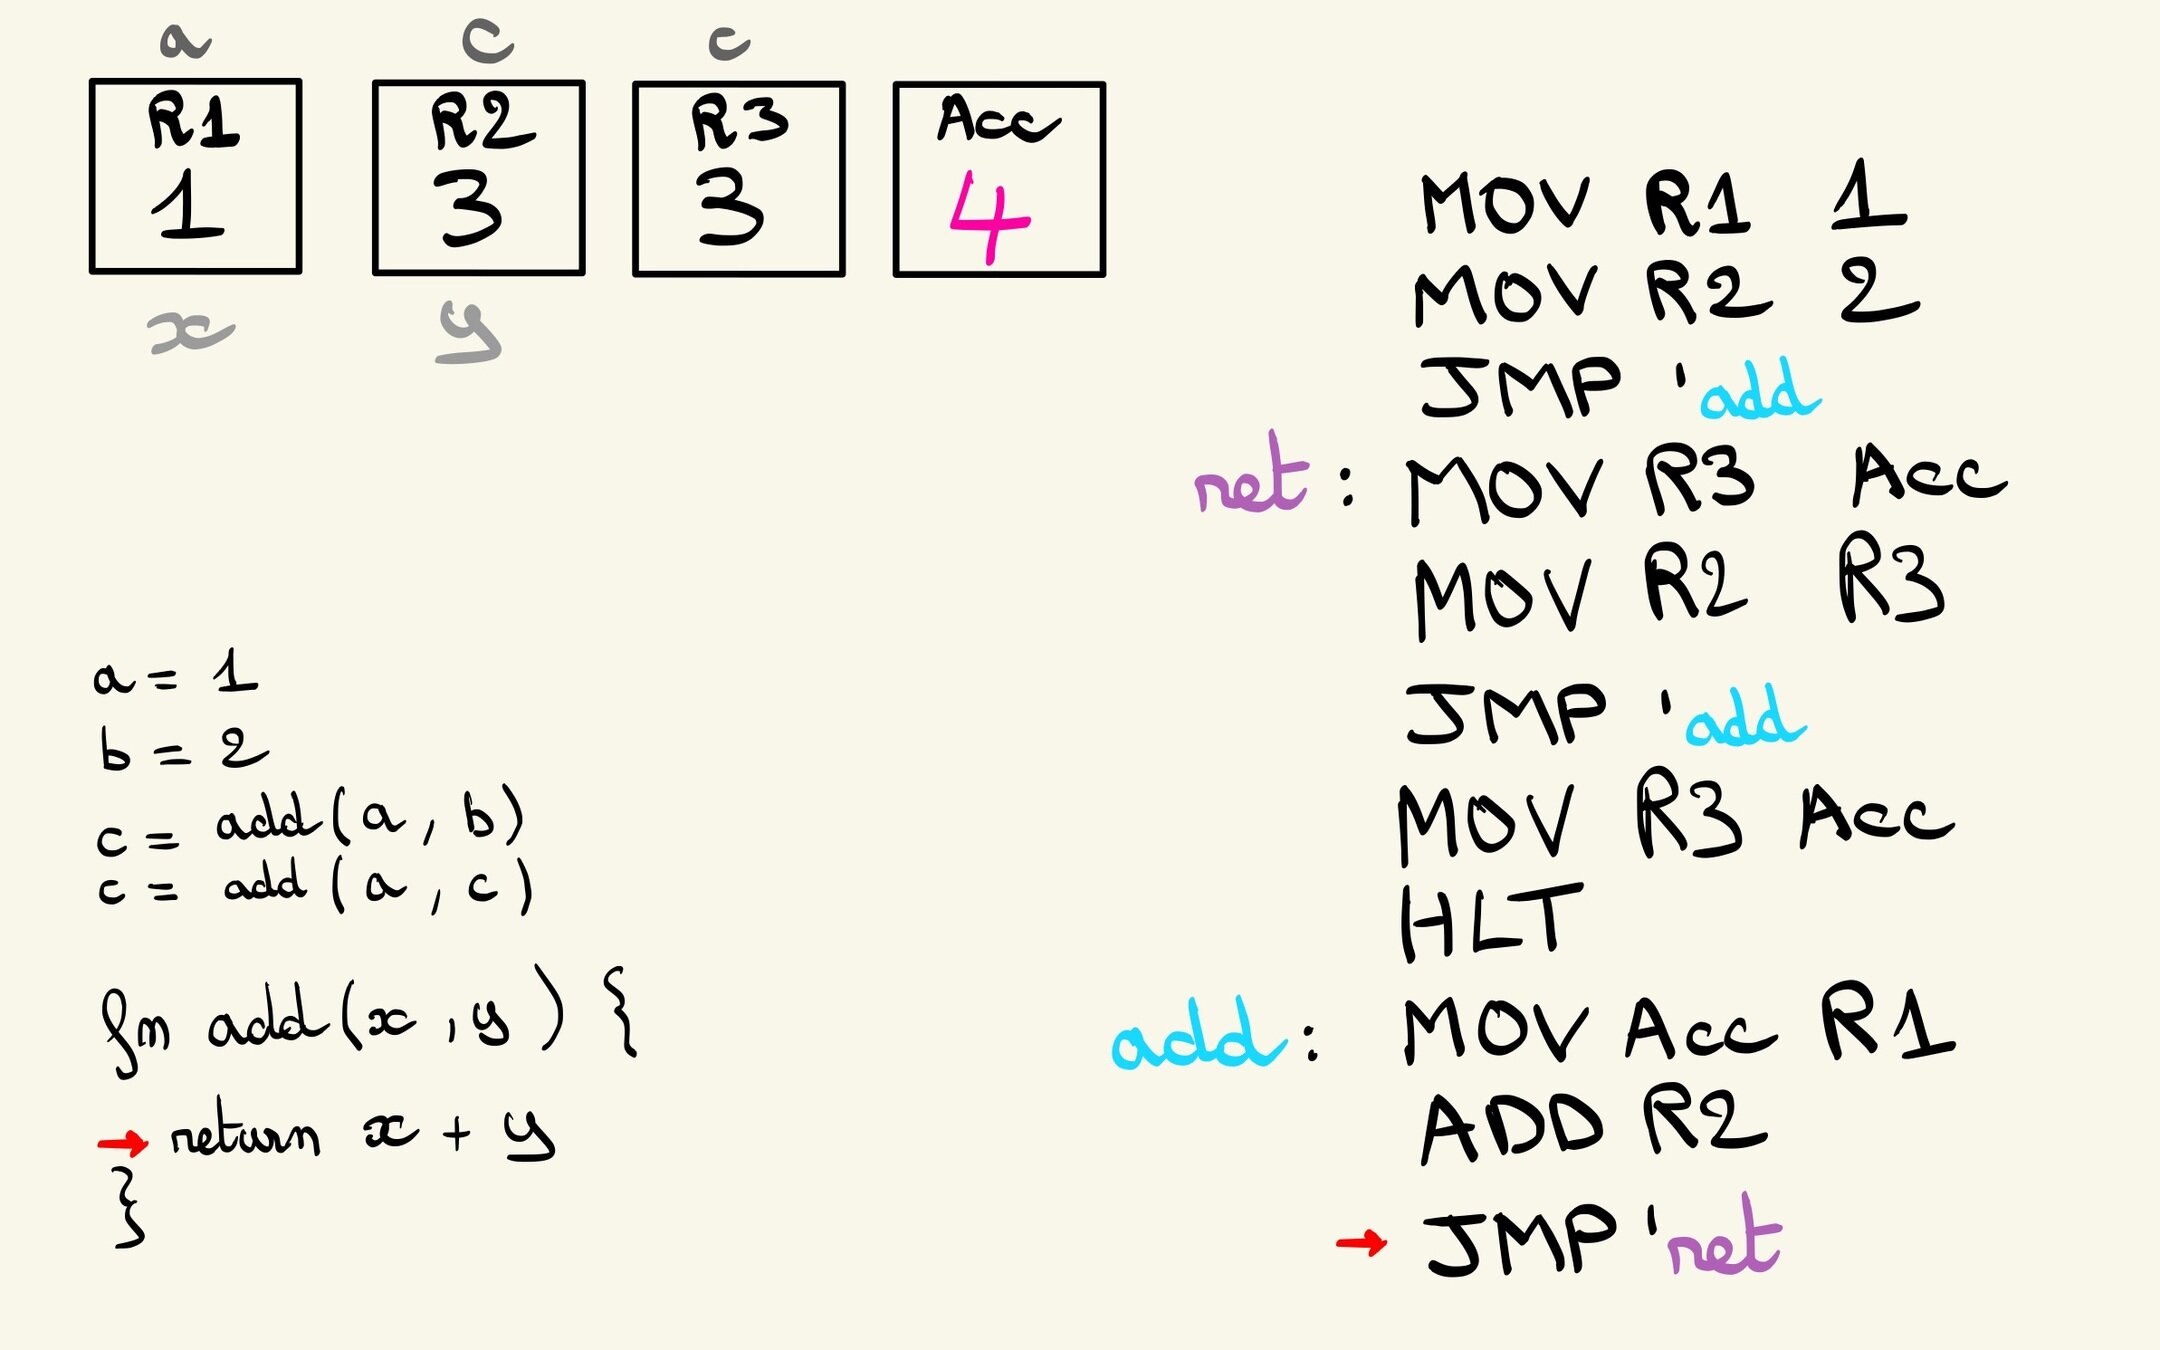 a c c
R1 R2 R3 Acc
1 3 3 4
x y
a = 1
b = 2
c = add(a, b)
c = add(a, c)
fn add(x, y) {
→ return x + y
}
MOV R1 1
MOV R2 2
JMP 'add
ret: MOV R3 Acc
MOV R2 R3
JMP 'add
MOV R3 Acc
HLT
add: MOV Acc R1
ADD R2
→ JMP 'ret